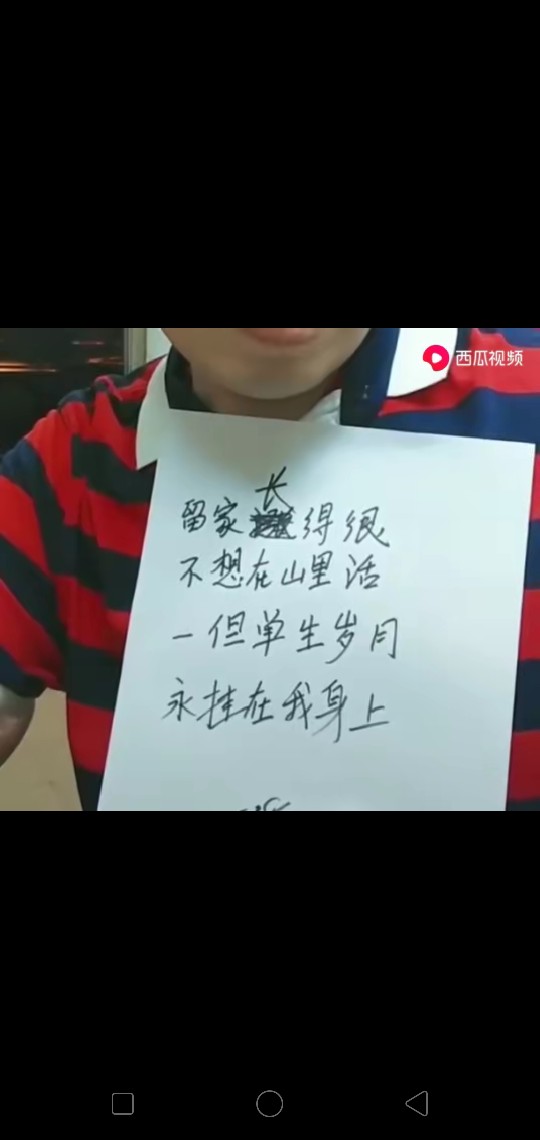 西瓜视频
留家长得很
不想在山里活
一但单生岁月
永挂在我身上